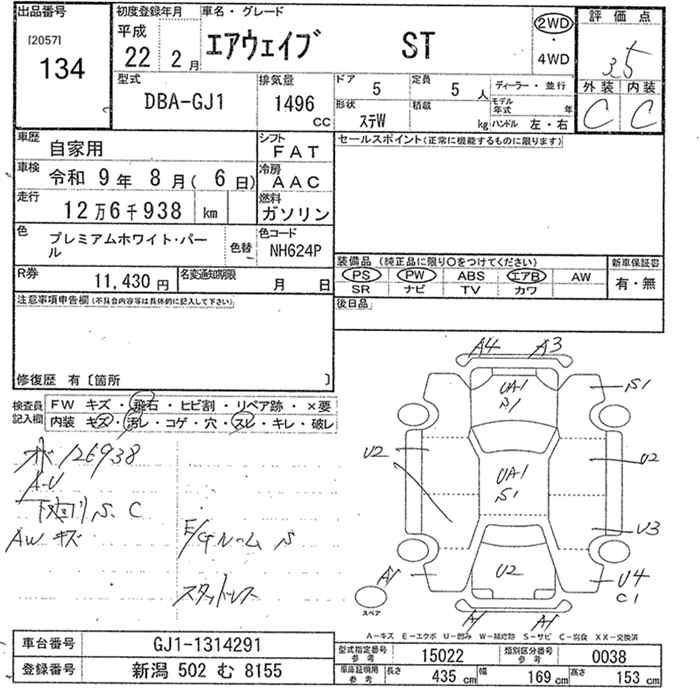 出品番号
[2057]
134
初度登録年月
平成
22 2月
車名・グレード
エアウェイブ ST
2WD
・
4WD
評価点
3.5
外装 内装
C C
型式
DBA-GJ1
排気量
1496 cc
ドア 5
定員 5 人
形状 ステW
積載 kg
ディーラー・並行
モデル年式 年
ハンドル 左・右
車歴 自家用
車検 令和 9年 8月( 6日)
走行 12万6千938 km
色 プレミアムホワイト・パール
色替
色コード NH624P
シフト FAT
冷房 AAC
燃料 ガソリン
R券 11,430円
名変通知期限 月 日
セールスポイント(正常に機能するものに限ります)
装備品 (純正品に限り○をつけてください)
PS PW ABS エアB AW
SR ナビ TV カワ
新車保証書
有・無
後日品
注意事項申告欄(不具合内容等は具体的に記入して下さい)
修復歴 有〔箇所 〕
検査員記入欄
FW キズ・飛石・ヒビ割・リペア跡・×要
内装 キズ・汚レ・コゲ・穴・スレ・キレ・破レ
126938
A-U
下回り S、C
AW キズ
E/Gルーム S
スタッドレス
A4 A3
UA1
S1
S1
U2
UA1
S1
U2
U3
U2
A1
U4
C1
A1 A1
スペア
A-キズ E-エクボ U-凹み W-補修跡 S-サビ C-腐食 XX-交換済
車台番号 GJ1-1314291
登録番号 新潟 502 む 8155
型式指定番号 参考 15022
類別区分番号 参考 0038
車庫証明用 参考 長さ 435 cm 幅 169 cm 高さ 153 cm